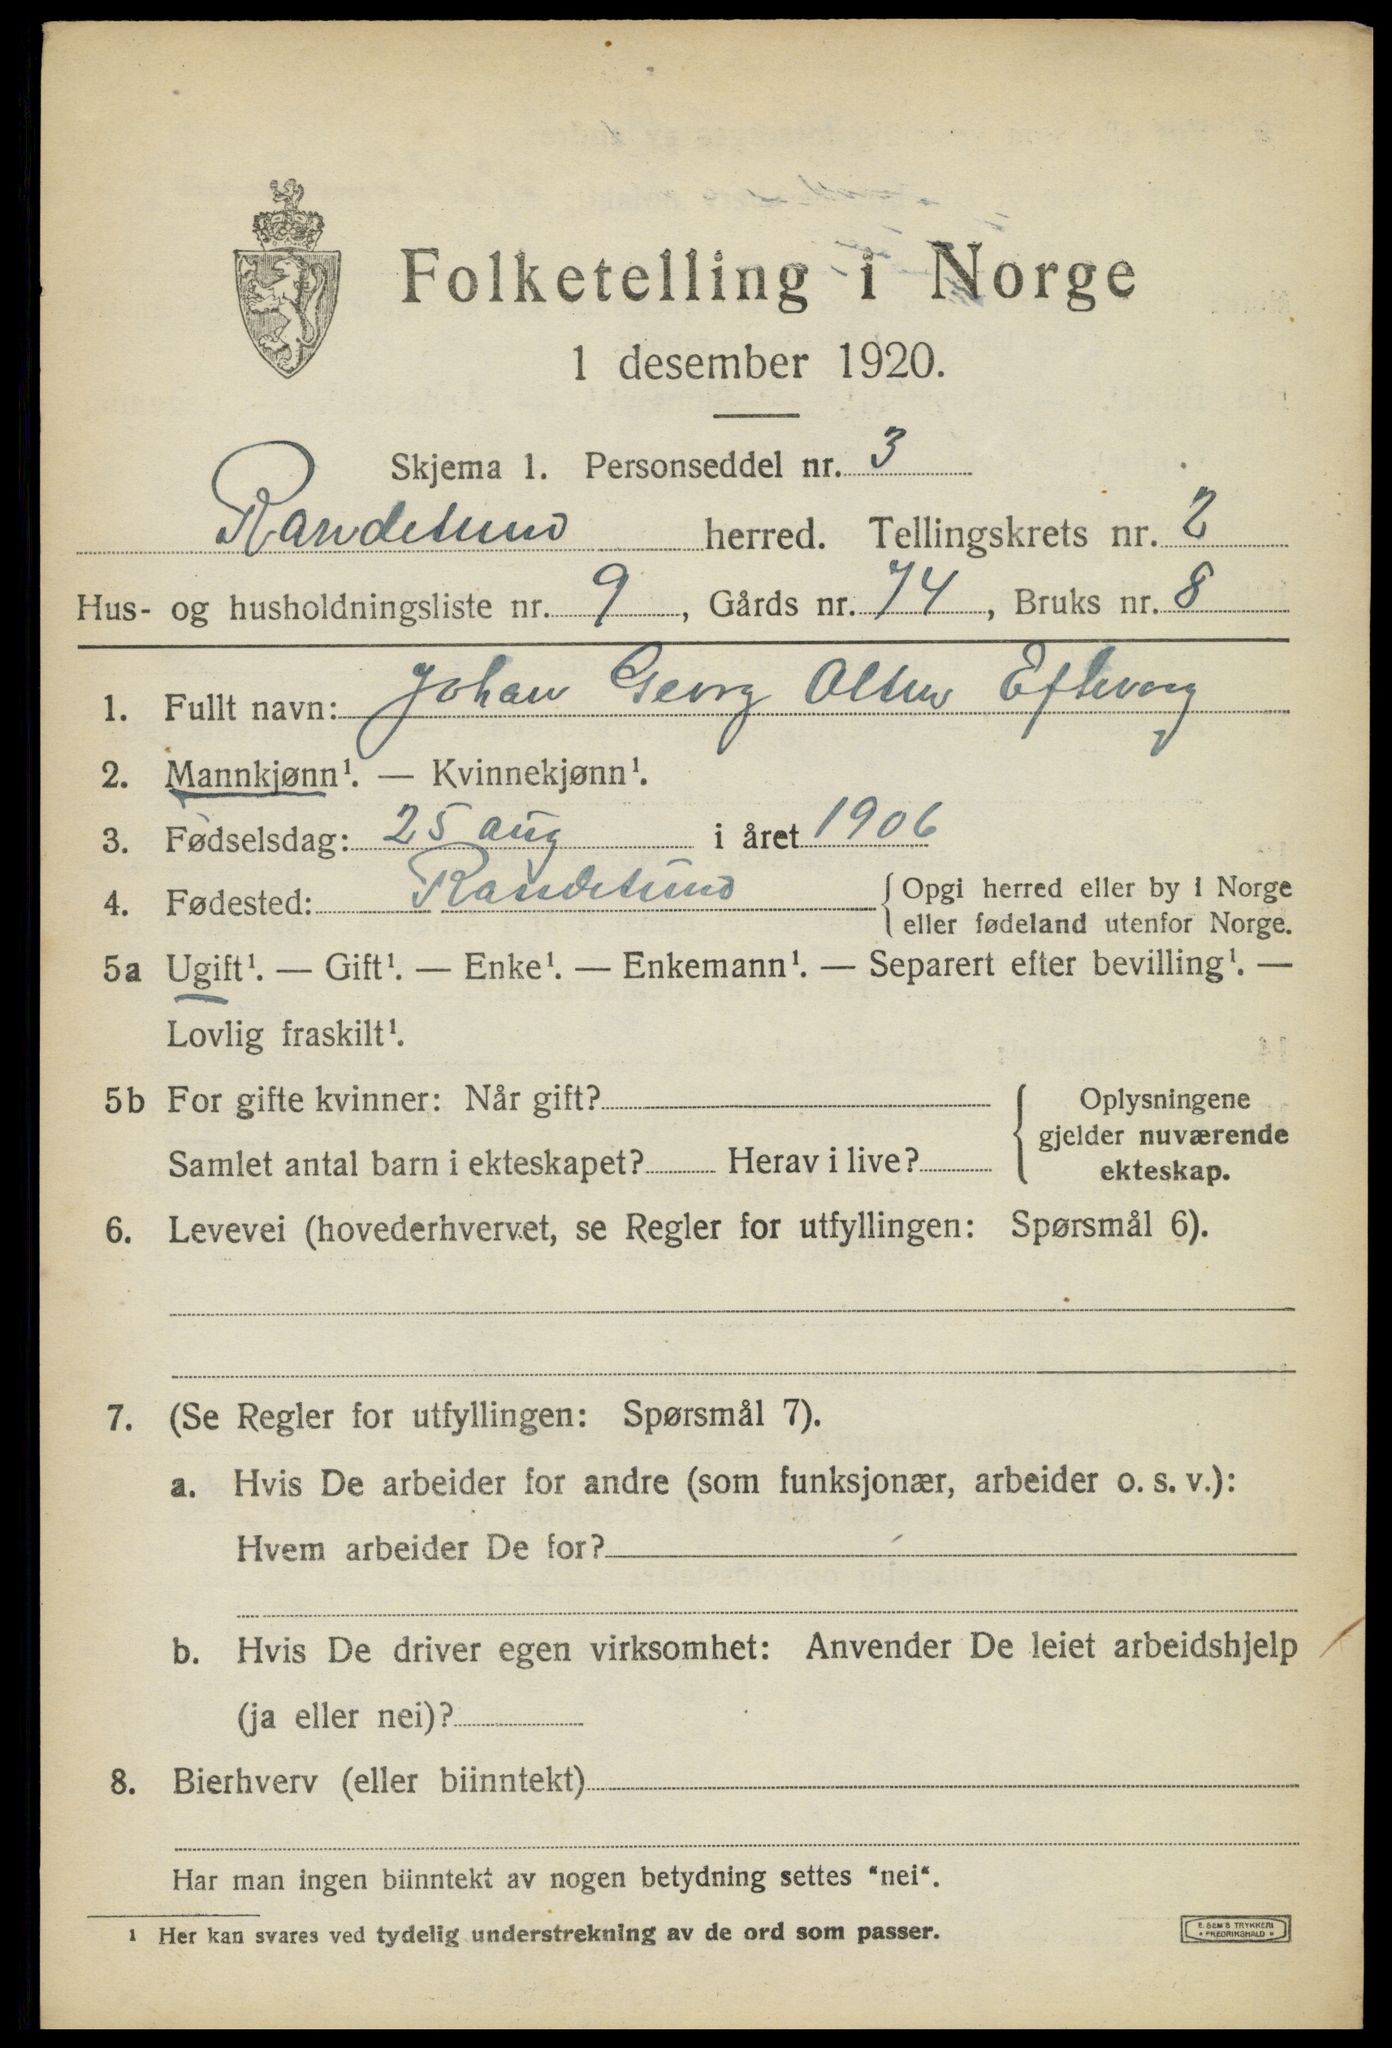 Folketelling i Norge
1 desember 1920.
Skjema 1. Personseddel nr. 3
Randesund herred. Tellingskrets nr. 2
Hus- og husholdningsliste nr. 9, Gårds nr. 74, Bruks nr. 8
1. Fullt navn: Johan Georg Olsen Eftevag
2. Mannkjønn¹. — Kvinnekjønn¹.
3. Fødselsdag: 25 aug i året 1906
4. Fødested: Randesund { Opgi herred eller by i Norge
eller fødeland utenfor Norge.
5a Ugift¹. — Gift¹. — Enke¹. — Enkemann¹. — Separert efter bevilling¹. —
Lovlig fraskilt¹.
5b For gifte kvinner: Når gift? { Oplysningene
gjelder nuværende
Samlet antal barn i ekteskapet? Herav i live? ekteskap.
6. Levevei (hovederhvervet, se Regler for utfyllingen: Spørsmål 6).
7. (Se Regler for utfyllingen: Spørsmål 7).
a. Hvis De arbeider for andre (som funksjonær, arbeider o. s. v.):
Hvem arbeider De for?
b. Hvis De driver egen virksomhet: Anvender De leiet arbeidshjelp
(ja eller nei)?
8. Bierhverv (eller biinntekt)
Har man ingen biinntekt av nogen betydning settes "nei".
1 Her kan svares ved tydelig understrekning av de ord som passer.
E. SEM'S TRYKKERI
* FREDRIKSHALD *